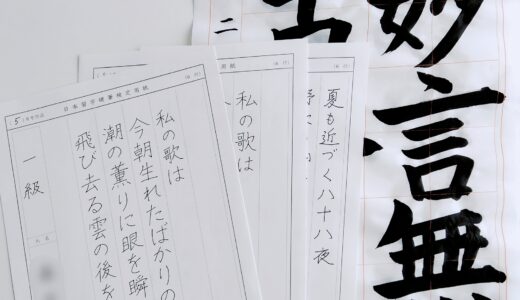 妙言無
二
夏も近づく八十八夜
野に
用紙
私の歌は
日本習字硬筆検定用紙
私の歌は
今朝生れたばかりの
潮の薫りに眼を瞬
飛び去る雲の後を
一級
氏名